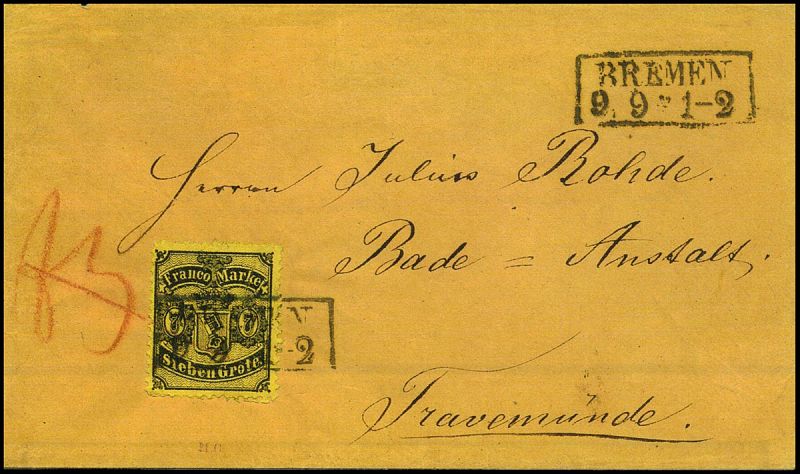 BREMEN
9 9 * 1-2
Herrn Julius Rohde.
Bade = Anstalt.
Travemünde.
Franco Marke
7 7
Sieben Grote.
N
-2